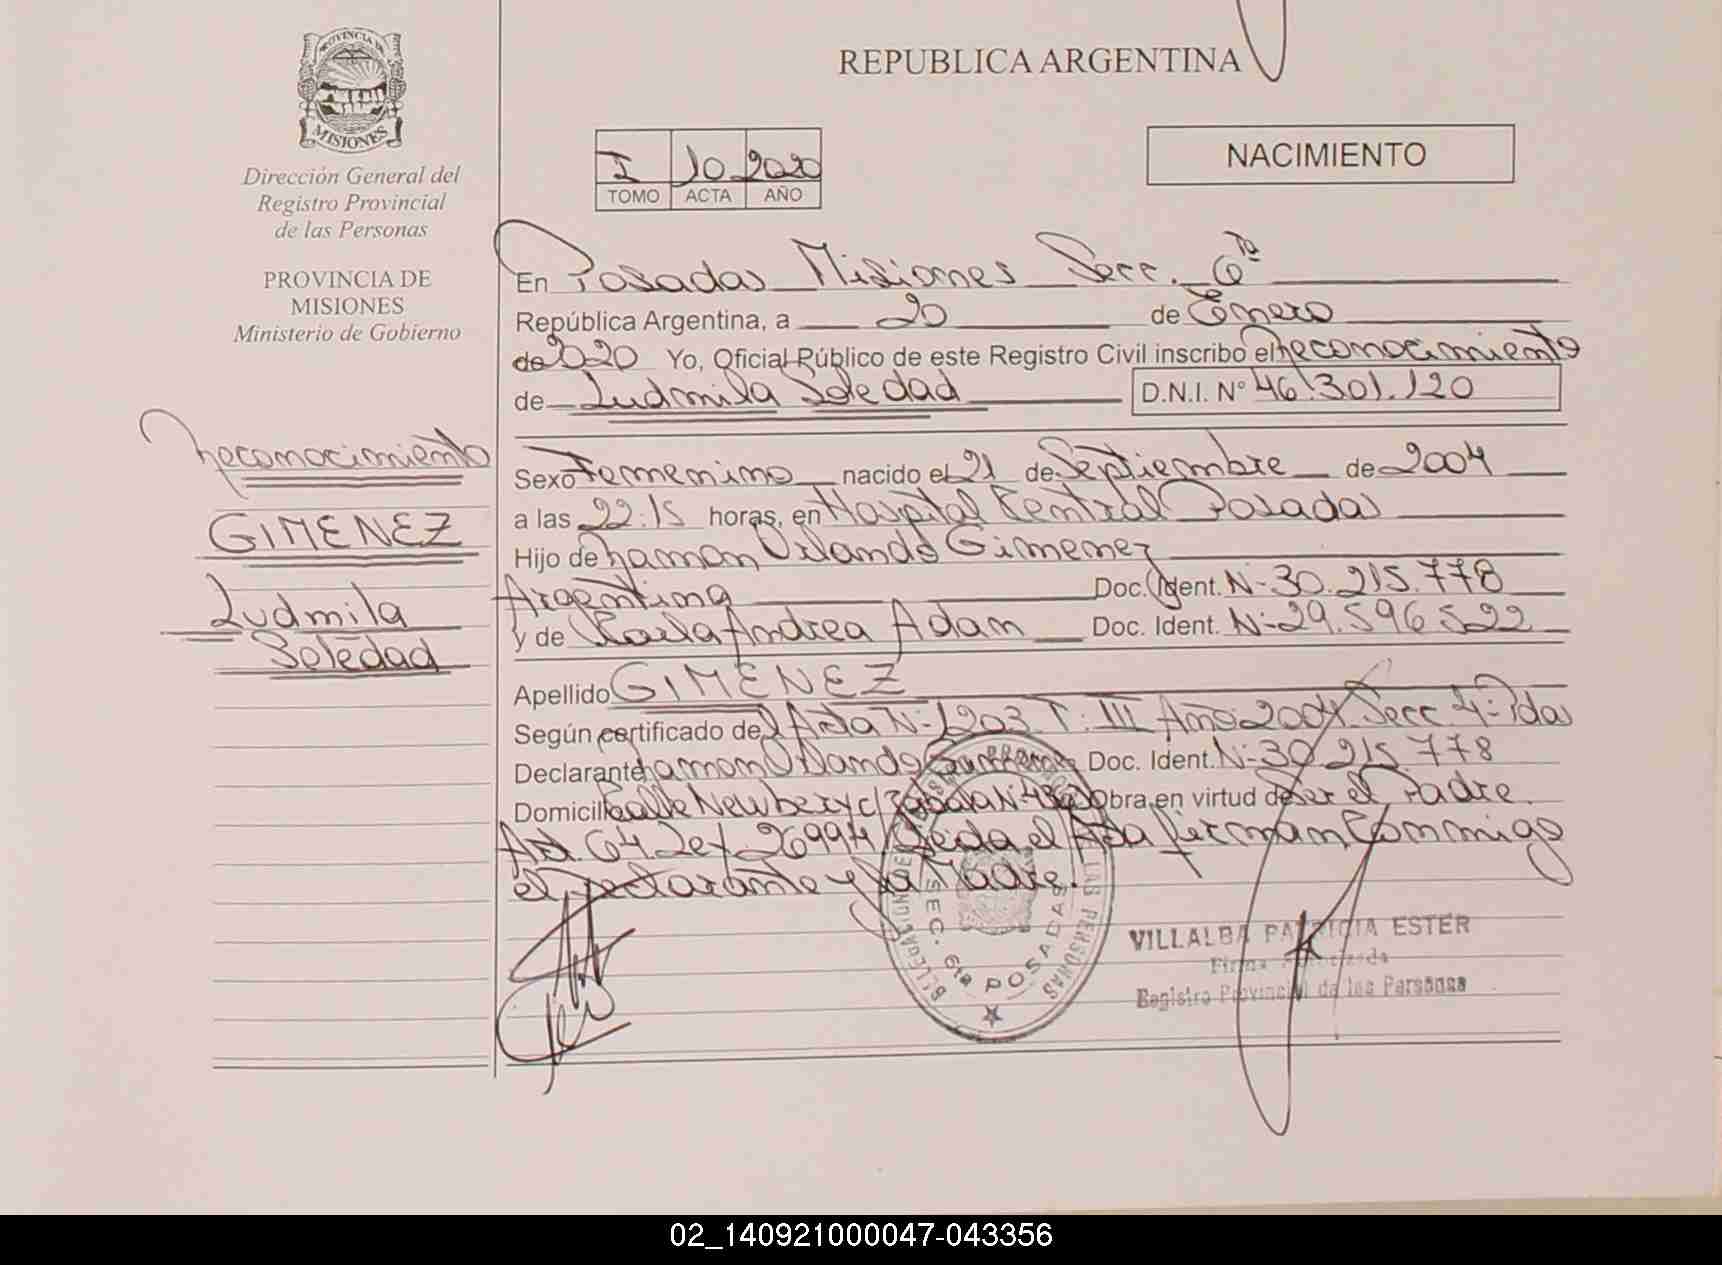 PROVINCIA DE
MISIONES
Dirección General del
Registro Provincial
de las Personas
PROVINCIA DE
MISIONES
Ministerio de Gobierno
Reconocimiento
GIMENEZ
Ludmila
Soledad
REPUBLICA ARGENTINA
I 10 2020
TOMO ACTA AÑO
NACIMIENTO
En Posadas Misiones Secc. 6ta
República Argentina, a 20 de Enero
de 2020 Yo, Oficial Público de este Registro Civil inscribo el Reconocimiento
de Ludmila Soledad D.N.I. N° 46.301.120
Sexo Femenino nacido el 21 de Septiembre de 2004
a las 22:15 horas, en Hospital Central Posadas
Hijo de Ramon Orlando Gimenez
Argentina Doc. Ident. N- 30.215.778
y de Karla Andrea Adam Doc. Ident. N- 29.596 522
Apellido GIMENEZ
Según certificado del Acta N- 1203 T: III Año 2004 Secc 4- Pdas
Declarante Ramon Orlando Doc. Ident. N- 30 215 778
Domicilio Calle Newbery c/ Zabala N- Obra en virtud de Ser el Padre.
Art. 64 Ley. 26994 Leida el Acta firman Conmigo
el Declarante y la Madre.
DE LAS PERSONAS
SEC. 6ta POSADAS
VILLALBA PATRICIA ESTER
Firma Autorizada
Registro Provincial de las Personas
02_140921000047-043356